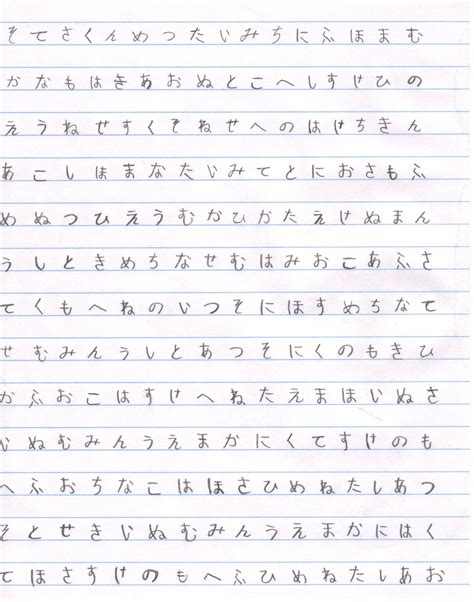 そてさくんめつたいみちにふほまむ
かなもはきあおぬとこへしすけひの
えうねせすくそねせへのはけちきん
あこしほまなたいみてとにおさもふ
めぬつひえうむかひかたえけぬまん
うしときめちなせむはみおこあふさ
てくもへねのいつそにほすめちなて
せむみんうしとあつそにくのもきひ
かふおこはすけへねたえまほいぬさ
いぬむみんうえまかにくてすけのも
へふおちなこはほさひめねたしあつ
そとせきいぬむみんうえまかにはく
てほさすけのもへふひめねたしあお